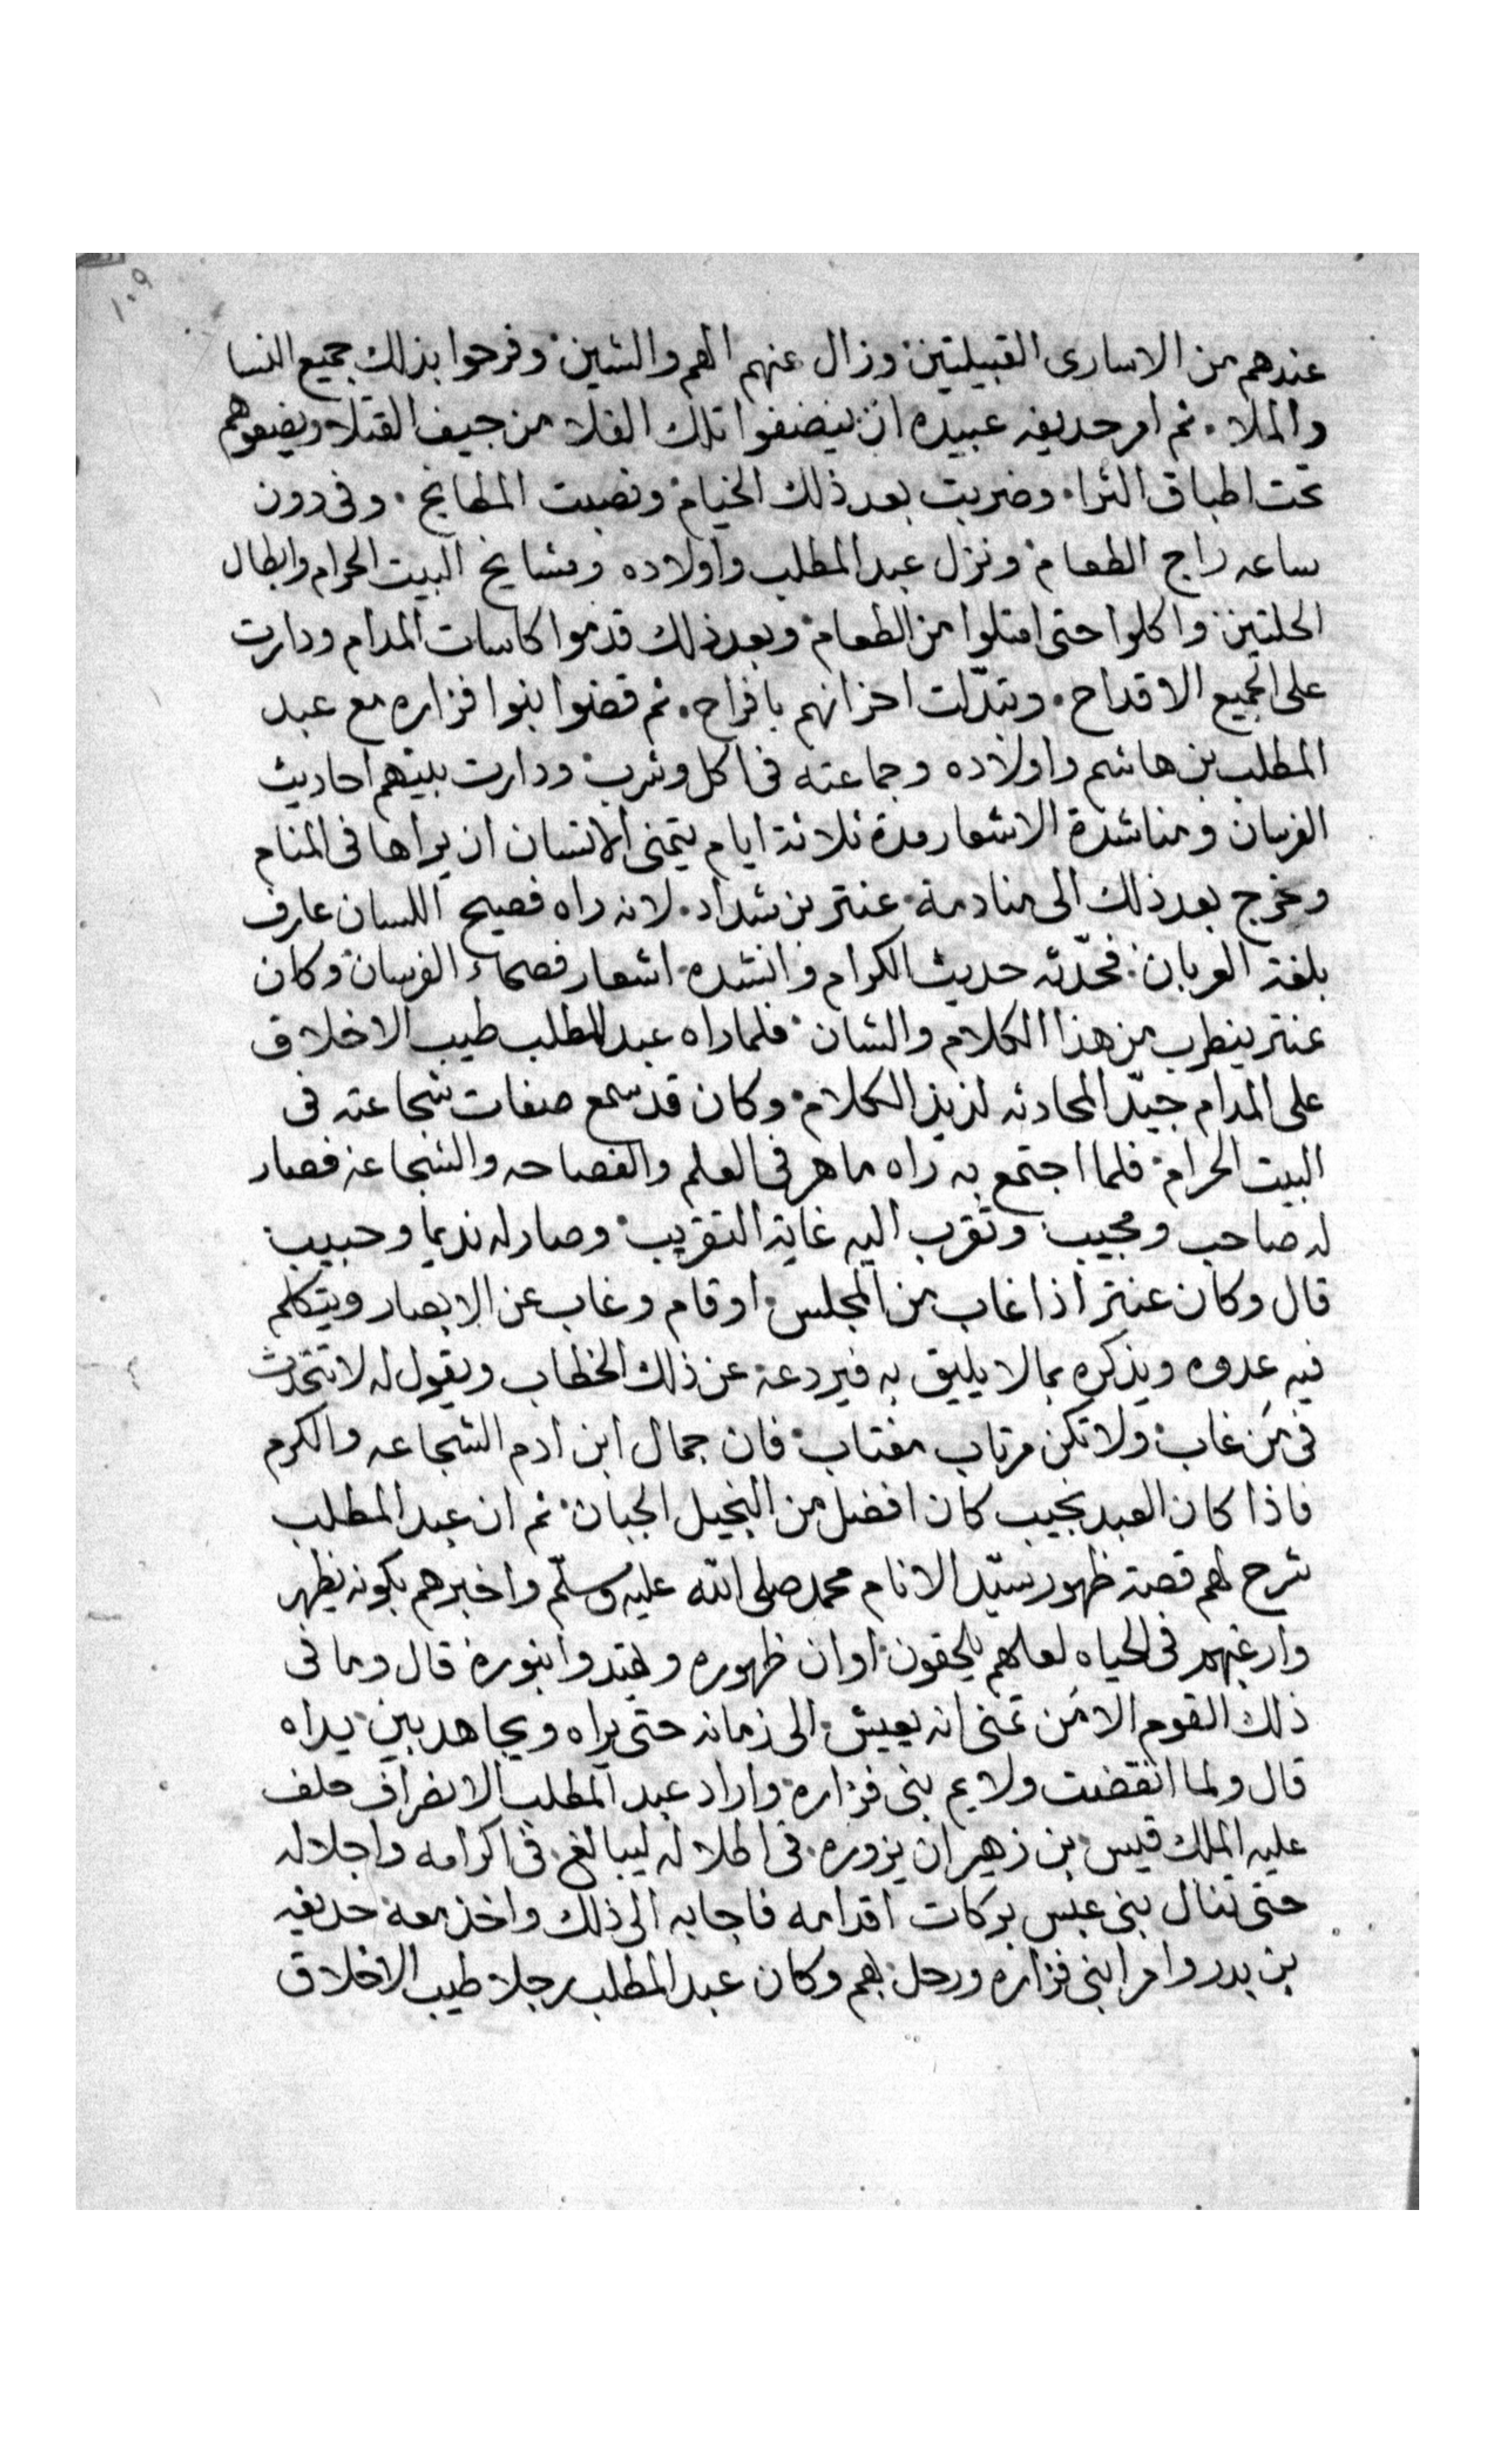 ١٠٩
عندهم من الاسارى القبيلتين وزال عنهم الهم والشين وفرحوا بذلك جميع النسا
والملا . ثم امر حديفه عبيده ان ينضفوا تلك الفلا من جيف القتلا ويضيعوهم
تحت اطباق الثرا . وضربت بعد ذلك الخيام ونصبت المطابخ . وفى دون
ساعه راج الطعام ونزل عبد المطلب واولاده ومشايخ البيت الحرام وابطال
الحلتين واكلوا حتى امتلوا من الطعام وبعد ذلك قدموا كاسات المدام ودارت
على الجميع الاقداح . وتبدّلت احزانهم بافراح . ثم قضوا بنوا فزاره مع عبد
المطلب بن هاشم واولاده وجماعته فى اكل وشرب ودارت بينهم احاديث
الفرسان ومناشدة الاشعار مدة ثلاثة ايام يتمنى الانسان ان يراها فى المنام
وخرج بعد ذلك الى منادمة عنتر بن شداد . لانه راه فصيح اللسان عارف
بلغة العربان . فحدّثه حديث الكرام وانشده اشعار فصحاء الفرسان وكان
عنتر ينطرب من هذا الكلام والشان فلما راه عبد المطلب طيب الاخلاق
على المدام جيّد المحادثه لذيذ الكلام وكان قد سمع صفات شجاعته فى
البيت الحرام فلما اجتمع به راه ماهر فى العلم والفصاحه والشجاعه فصار
له صاحب ومجيب وتقرب اليه غاية التقريب وصار له نديما وحبيب
قال وكان عنتر اذا غاب من المجلس او قام وغاب عن الابصار ويتكلم
فيه عدوه ويذكره بما لا يليق به فيردعه عن ذلك الخطاب ويقول له لا تتحدث
فى مَن غاب ولا تكن مرتاب مغتاب فان جمال ابن ادم الشجاعه والكرم
فاذا كان العبد نجيب كان افضل من البخيل الجبان ثم ان عبد المطلب
شرح لهم قصة ظهور سيّد الانام محمد صلى الله عليه وسلّم واخبرهم بكونه يظهر
وارغبهم فى الحياه لعلهم يلحقون اوان ظهوره ويهتدوا بنوره قال وما فى
ذلك القوم الا مَن تمنى انه يعيش الى زمانه حتى يراه ويجاهد بين يداه
قال ولما انقضت ولايم بنى فزاره واراد عبد المطلب الانصراف حلف
عليه الملك قيس بن زهير ان يزوره فى اطلاله ليبالغ فى اكرامه واجلاله
حتى تنال بنى عبس بركات اقدامه فاجابه الى ذلك واخذ معه حديفه
بن بدر وامرا بنى فزاره ورحل بهم وكان عبد المطلب رجلا طيب الاخلاق